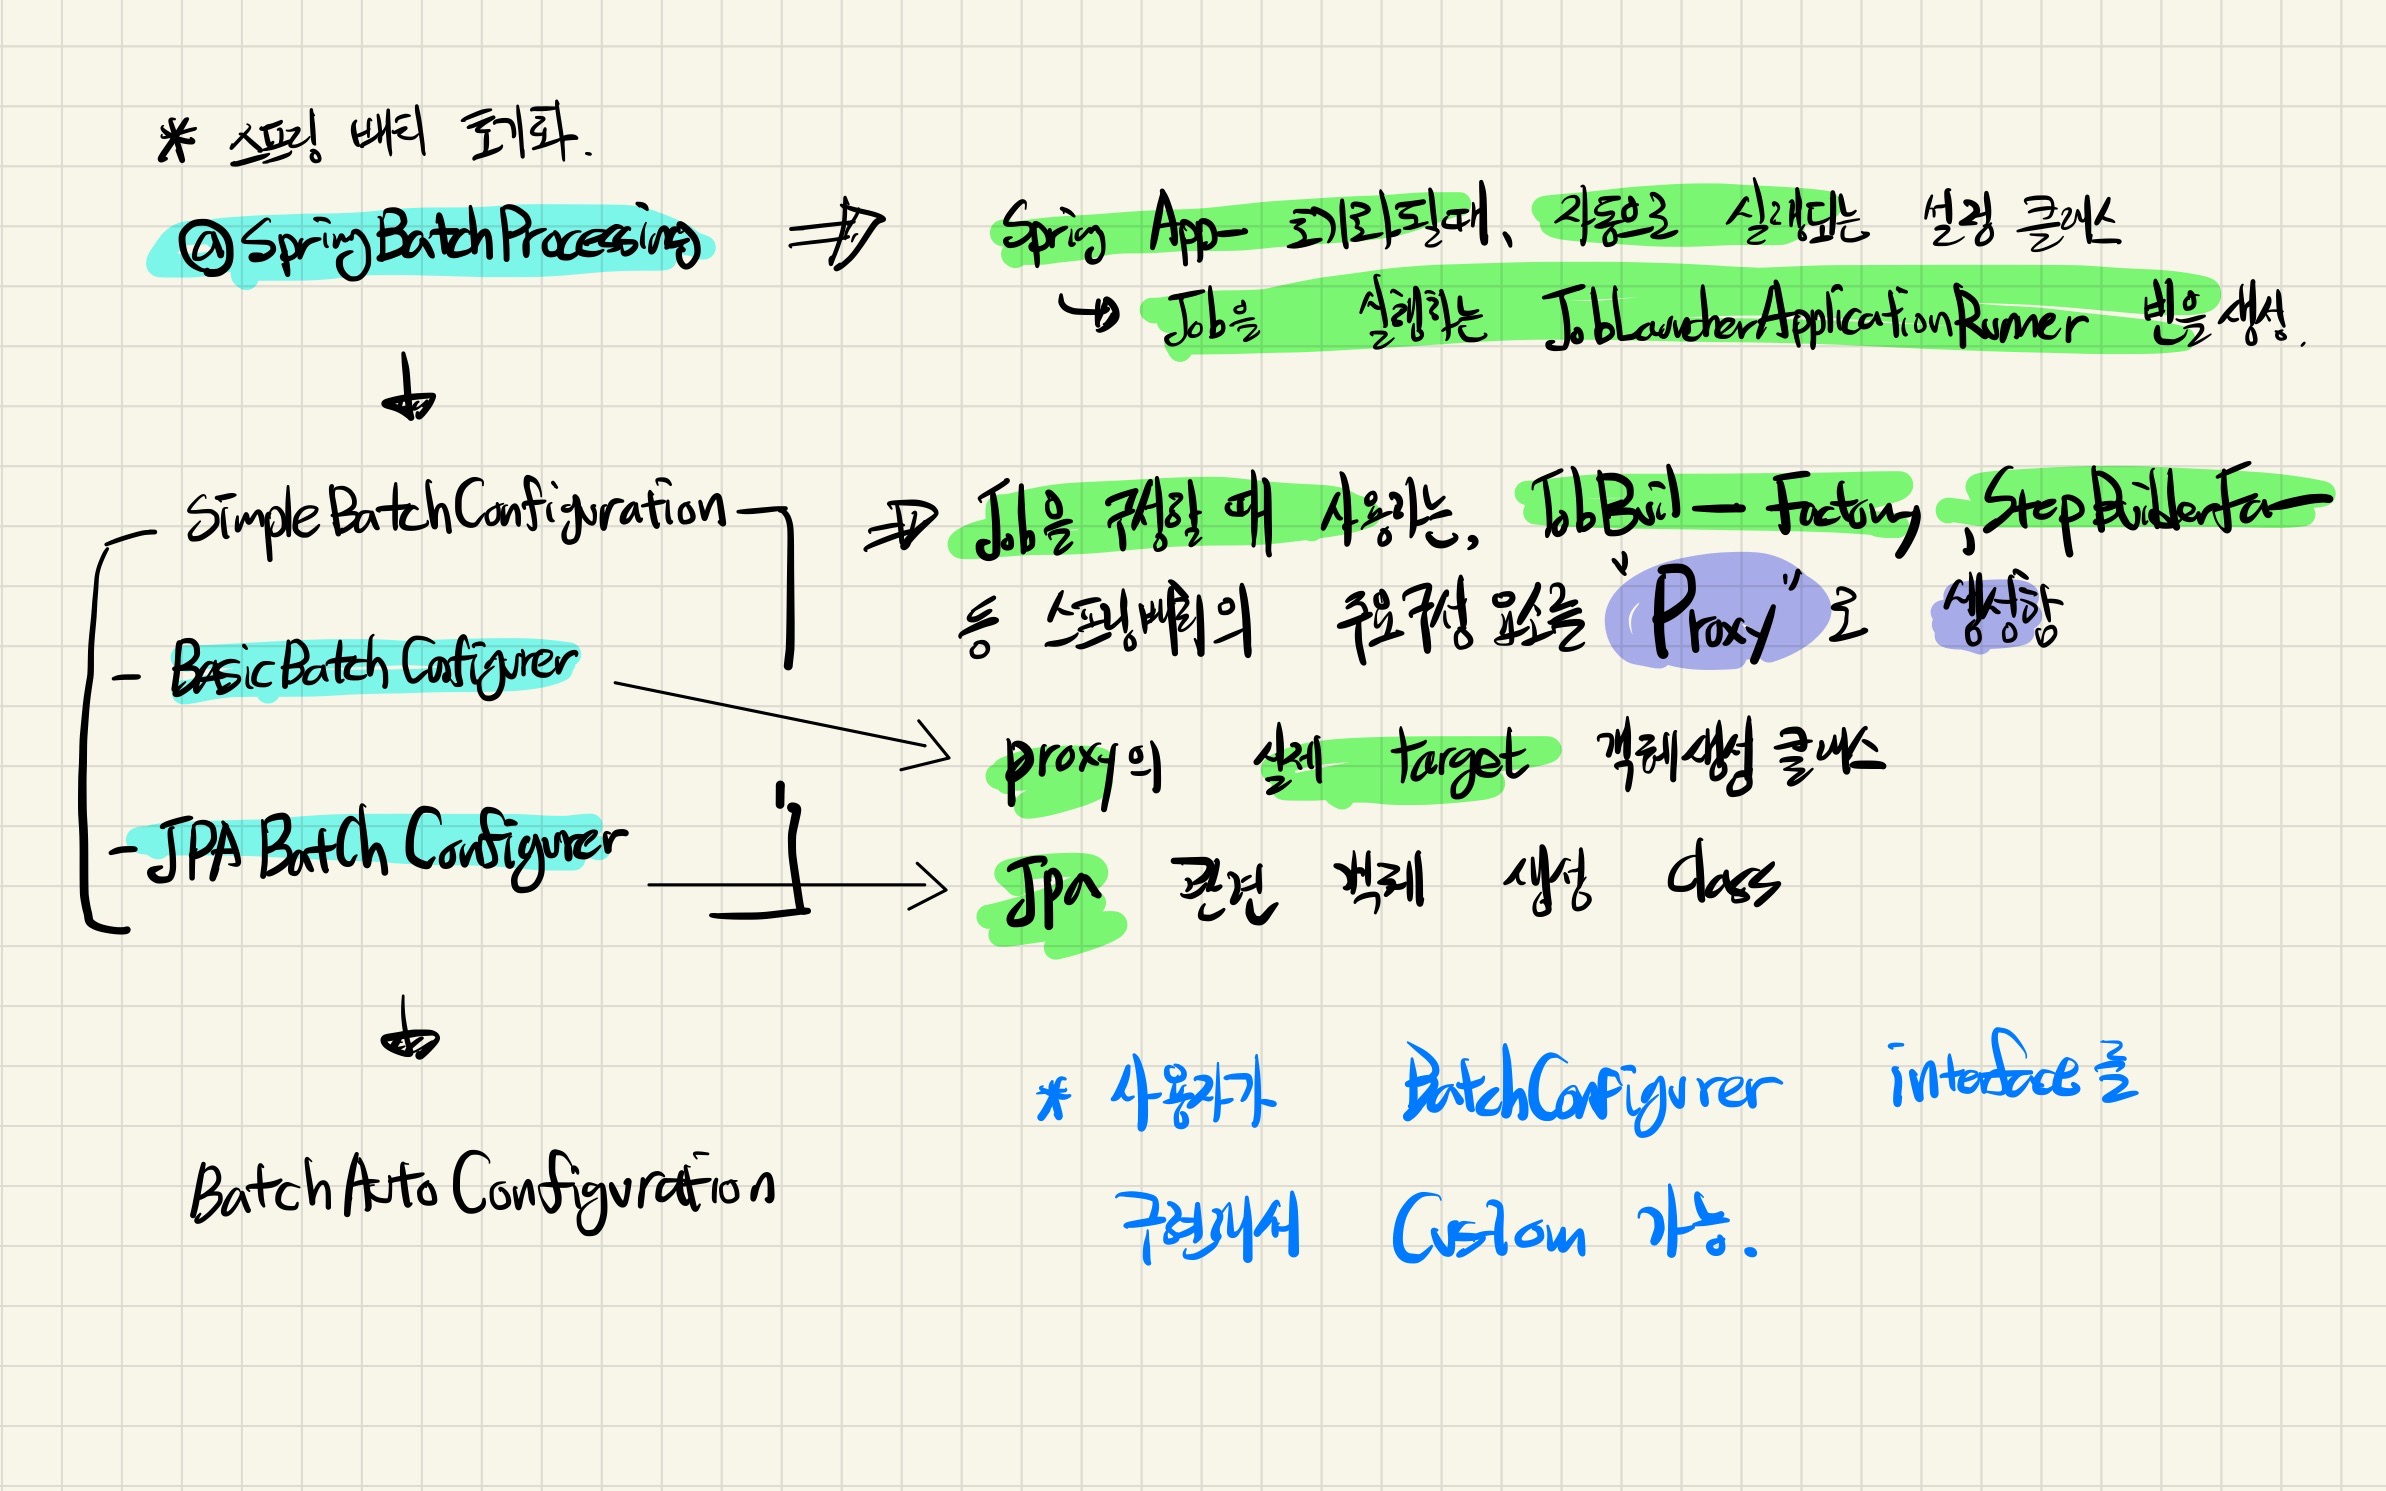 * 스프링 배치 초기화.
@SpringBatchProcessing
Spring App- 초기화 될때, 자동으로 실행되는 설정 클래스
Job을 실행하는 JobLauncherApplicationRunner 빈을 생성.
SimpleBatchConfiguration
Job을 구성할 때 사용하는, JobBuil-Factory, StepBuilderFa-
등 스프링배치의 주요구성 요소를 "Proxy"로 생성함
- BasicBatch Configurer
proxy의 실제 target 객체생성 클래스
- JPA Batch Configurer
Jpa 관련 객체 생성 class
BatchAutoConfiguration
* 사용자가 BatchConfigurer interface를
구현해서 Custom 가능.